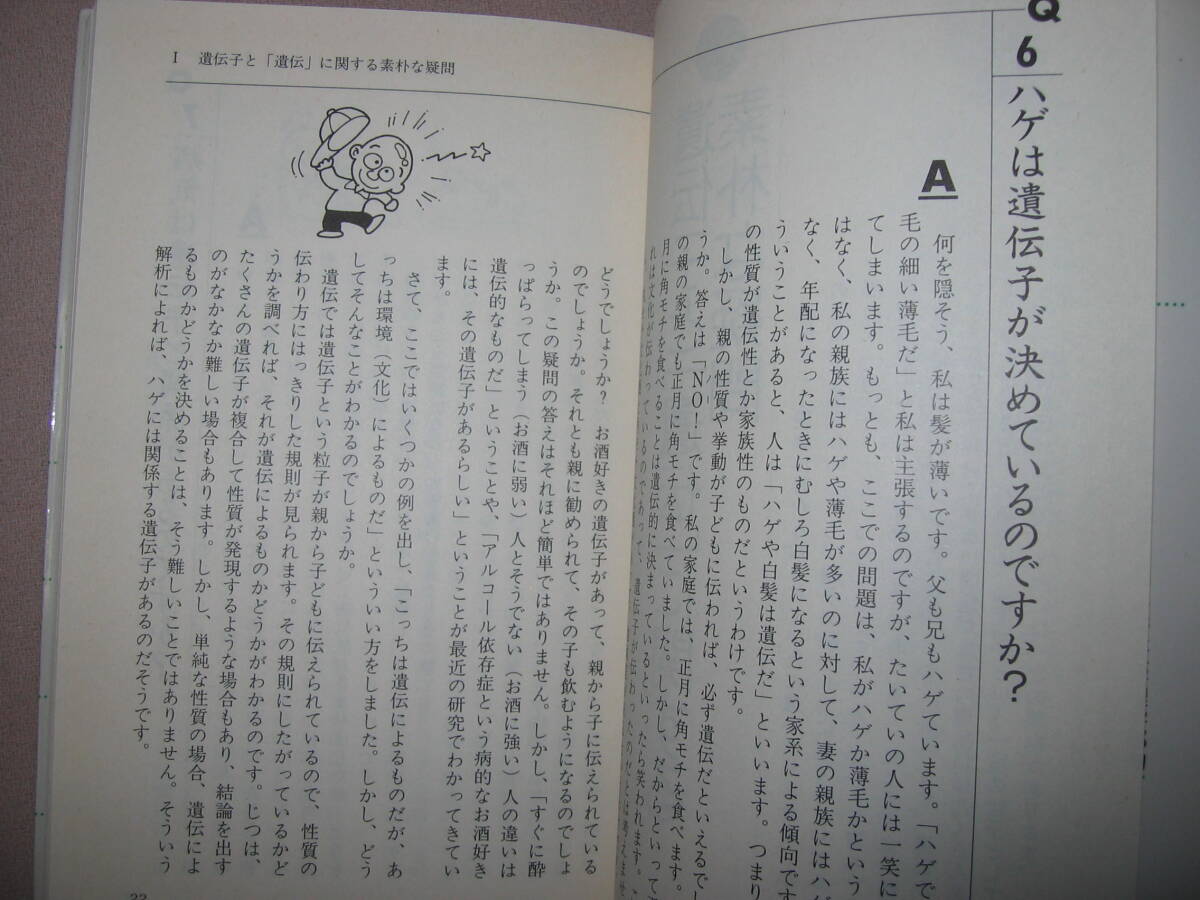 Q
6
ハゲは遺伝子が決めているのですか？
A
何を隠そう、私は髪が薄いです。父も兄もハゲています。「ハゲで
毛の細い薄毛だ」と私は主張するのですが、たいていの人には一笑に
てしまいます。もっとも、ここでの問題は、私がハゲか薄毛かという
はなく、私の親族にはハゲや薄毛が多いのに対して、妻の親族にはハ
なく、年配になったときにむしろ白髪になるという家系による傾向です
ういうことがあると、人は「ハゲや白髪は遺伝だ」といいます。つまり
の性質が遺伝性とか家族性のものだというわけです。
しかし、親の性質や挙動が子どもに伝われば、必ず遺伝だといえるでし
うか。答えは「NO！」です。私の家庭では、正月に角モチを食べます。
の親の家庭でも正月に角モチを食べていました。しかし、だからといって
月に角モチを食べることは遺伝的に決まっているといったら笑われます。
れは文化が伝わっているのであって、遺伝子が伝わったのだとは考えませ
I 遺伝子と「遺伝」に関する素朴な疑問
どうでしょうか？ お酒好きの遺伝子があって、親から子に伝えられている
のでしょうか。それとも親に勧められて、その子も飲むようになるのでしょ
うか。この疑問の答えはそれほど簡単ではありません。しかし、「すぐに酔
っぱらってしまう（お酒に弱い）人とそうでない（お酒に強い）人の違いは
遺伝的なものだ」ということや、「アルコール依存症という病的なお酒好き
には、その遺伝子があるらしい」ということが最近の研究でわかってきてい
ます。
さて、ここではいくつかの例を出し、「こっちは遺伝によるものだが、あ
っちは環境（文化）によるものだ」といういい方をしました。しかし、どう
してそんなことがわかるのでしょうか。
遺伝では遺伝子という粒子が親から子どもに伝えられているので、性質の
伝わり方にはっきりした規則が見られます。その規則にしたがっているかど
うかを調べれば、それが遺伝によるものかどうかがわかるのです。じつは、
たくさんの遺伝子が複合して性質が発現するような場合もあり、結論を出す
のがなかなか難しい場合もあります。しかし、単純な性質の場合、遺伝によ
るものかどうかを決めることは、そう難しいことではありません。そういう
解析によれば、ハゲには関係する遺伝子があるのだそうです。